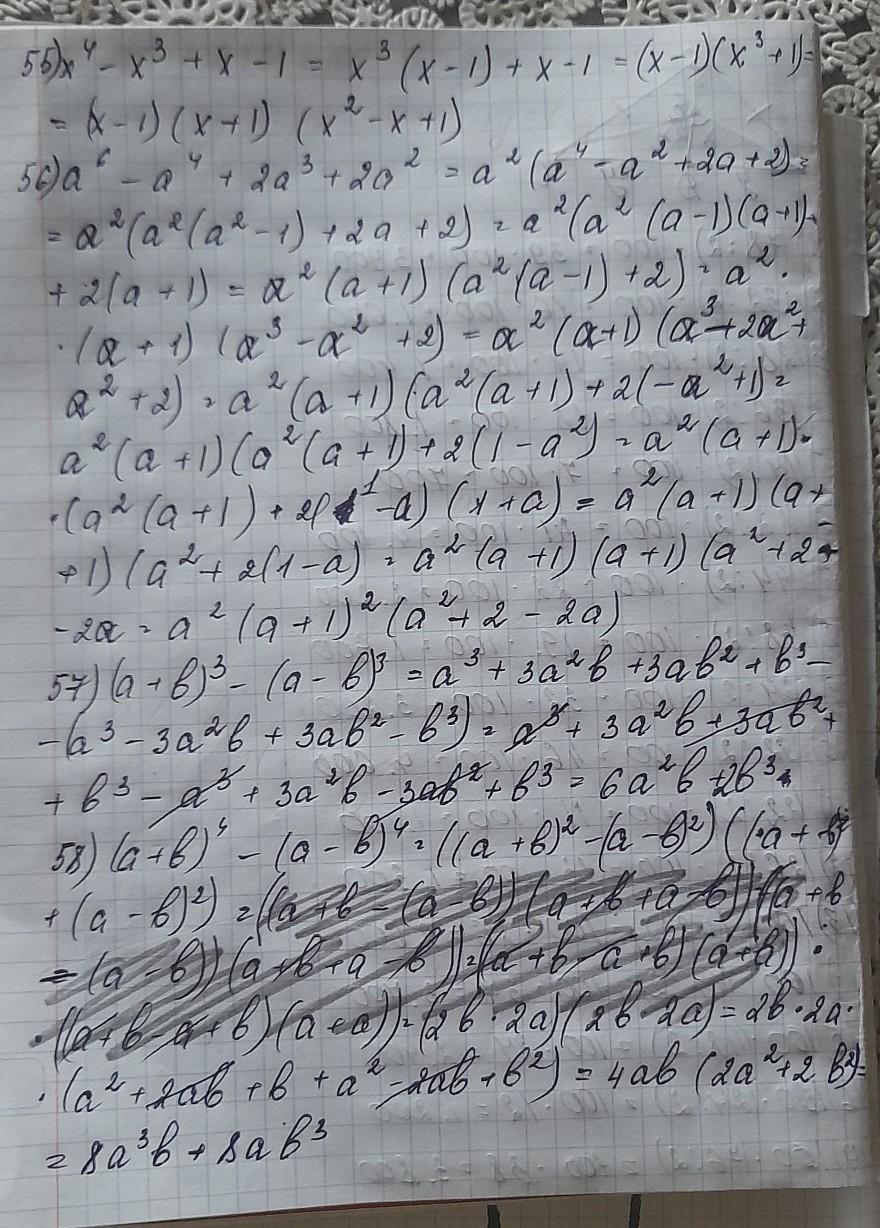 55) x⁴ - x³ + x - 1 = x³ (x - 1) + x - 1 = (x - 1)(x³ + 1) =
= (x - 1) (x + 1) (x² - x + 1)
56) a⁶ - a⁴ + 2a³ + 2a² = a² (a⁴ - a² + 2a + 2) =
= a² (a² (a² - 1) + 2a + 2) = a² (a² (a - 1)(a + 1) +
+ 2(a + 1) = a² (a + 1) (a² (a - 1) + 2) = a² ·
· (a + 1) (a³ - a² + 2) = a² (a + 1) (a³ + 2a² +
a² + 2) = a² (a + 1) (a² (a + 1) + 2(-a² + 1) =
a² (a + 1) (a² (a + 1) + 2 (1 - a²) = a² (a + 1) ·
· (a² (a + 1) + 2( 1 - a) (1 + a) = a² (a + 1) (a +
+ 1) (a² + 2(1 - a) = a² (a + 1) (a + 1) (a² + 2 -
- 2a = a² (a + 1)² (a² + 2 - 2a)
57) (a + b)³ - (a - b)³ = a³ + 3a²b + 3ab² + b³ -
- (a³ - 3a²b + 3ab² - b³) = a³ + 3a²b + 3ab² +
+ b³ - a³ + 3a²b - 3ab² + b³ = 6a²b + 2b³
58) (a + b)⁴ - (a - b)⁴ = ((a + b)² - (a - b)²) ((a + b)²
+ (a - b)²) = ((a + b - (a - b)) (a + b + a - b)) ((a + b
= (a - b)) (a + b + a - b)) = ((a + b - a + b) (a + a)) ·
· ((a + b - a + b) (a + a)) = (2b · 2a) (2b · 2a) = 2b · 2a ·
· (a² + 2ab + b + a² - 2ab + b²) = 4ab (2a² + 2b²) =
= 8a³b + 8ab³